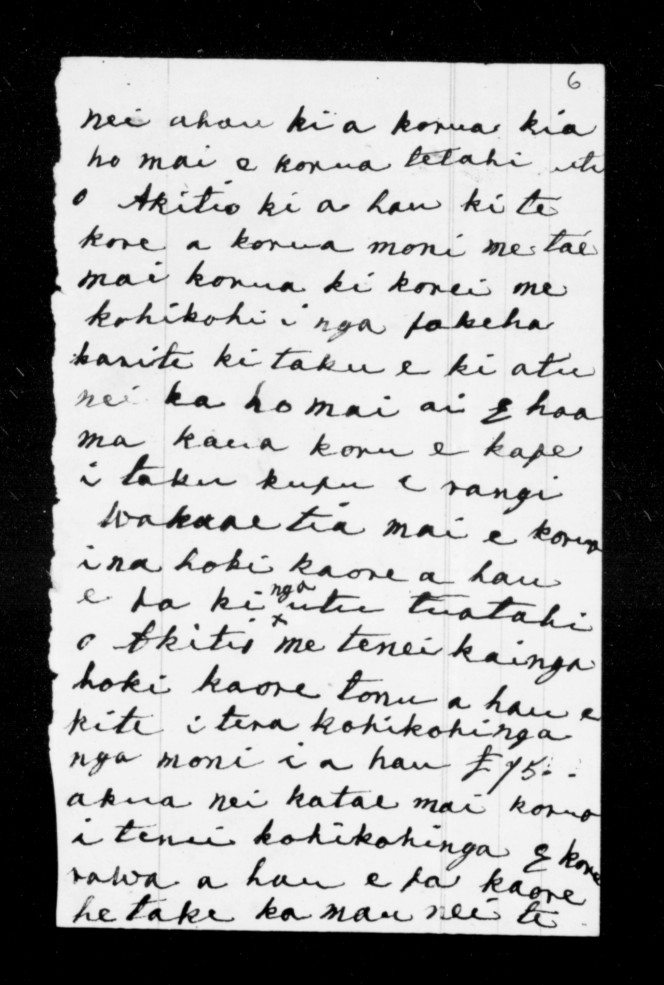 6
nei ahau ki a korua kia
ho mai e korua tetahi utu
o Akitio ki a hau ki te
kore a korua moni me tae
mai korua ki konei me
kohikohi i nga pakeha
karite ki taku e ki atu
nei ka ho mai ai E haa
ma kaua koru e kape
i taku kupu e rangi
wakaaetia mai e korua
ina hoki kaore a hau
e pa ki nga utu tuatahi
o Akitio me tenei kainga
hoki kaore tonu a hau e
kite i tera kohikohinga
nga moni i a hau £75..
akua nei katae mai korua
i tenei kohikohinga E kore
rawa a hau e pa kaore
he take ka mau nei te